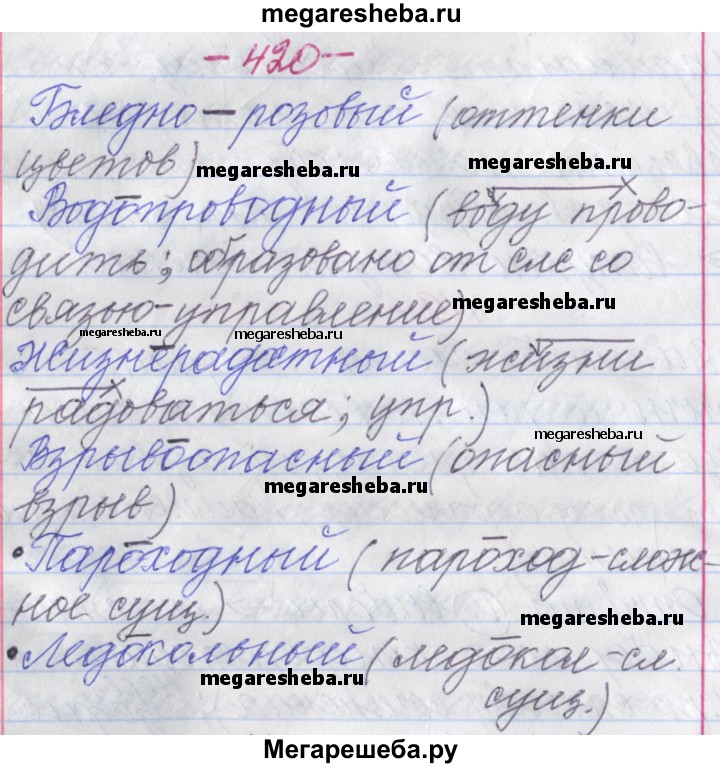 megaresheba.ru
- 420 -
Бледно-розовый (оттенки
цветов) megaresheba.ru megaresheba.ru
Водопроводный (воду прово-
дить; образовано от слс со
связью-управление) megaresheba.ru
megaresheba.ru megaresheba.ru
Жизнерадостный (жизни
радоваться; упр.)
megaresheba.ru
Взрывоопасный (опасный
взрыв) megaresheba.ru
• Пароходный (пароход-слож-
ное сущ.) megaresheba.ru
• Ледокольный (ледокол-сл.
megaresheba.ru сущ.)
Мегарешеба.ру